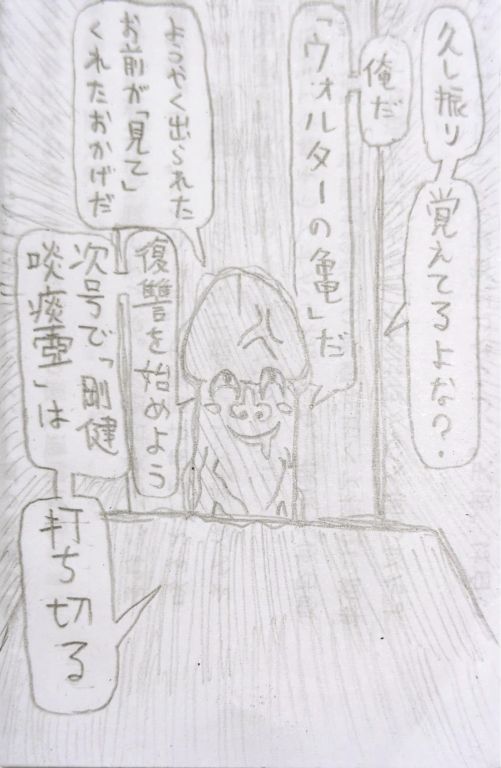 久し振り
覚えてるよな?
俺だ
「ウォルターの亀」だ
ようやく出られた
お前が「見て」
くれたおかげだ
復讐を始めよう
次号で「剛健
啖痰壺」は
打ち切る